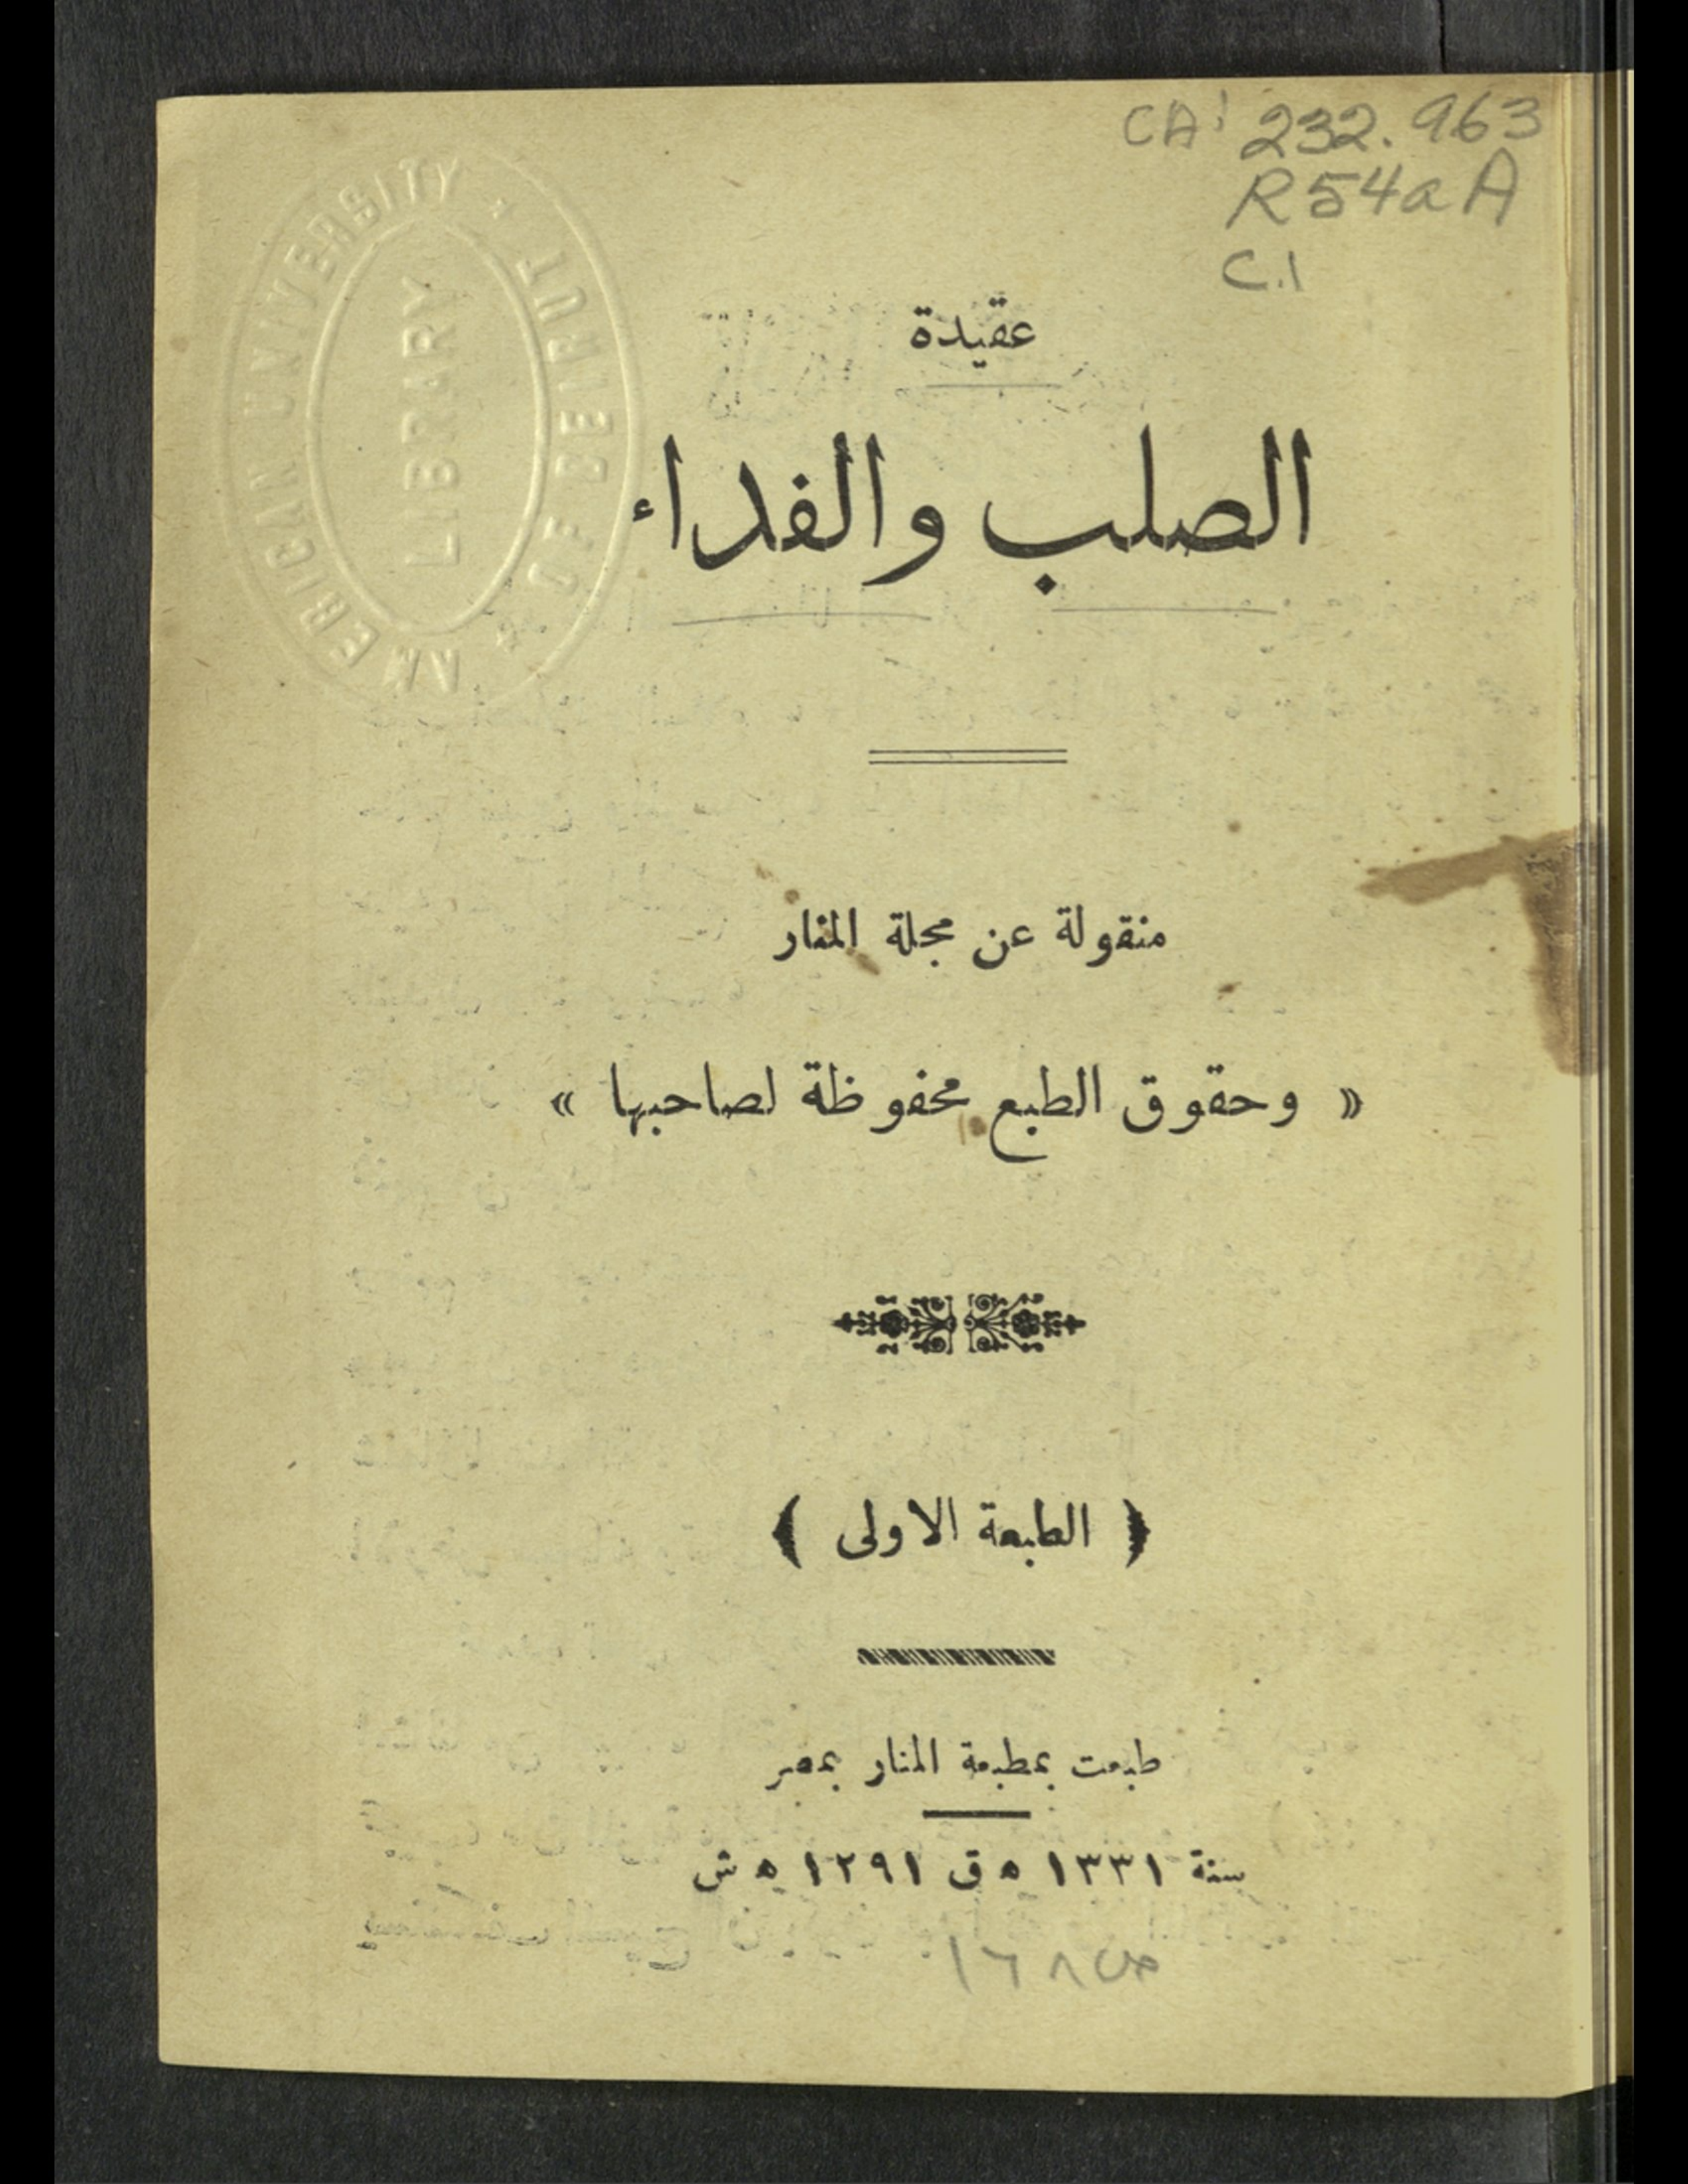 CA 232.963
R54aA
C.1
AMERICAN UNIVERSITY * OF BEIRUT *
LIBRARY
عقيدة
الصلب والفداء
منقولة عن مجلة المنار
« وحقوق الطبع محفوظة لصاحبها »
( الطبعة الاولى )
طبعت بمطبعة المنار بمصر
سنة ١٣٣١ ه ق ١٢٩١ ه ش
١٦٨ ص